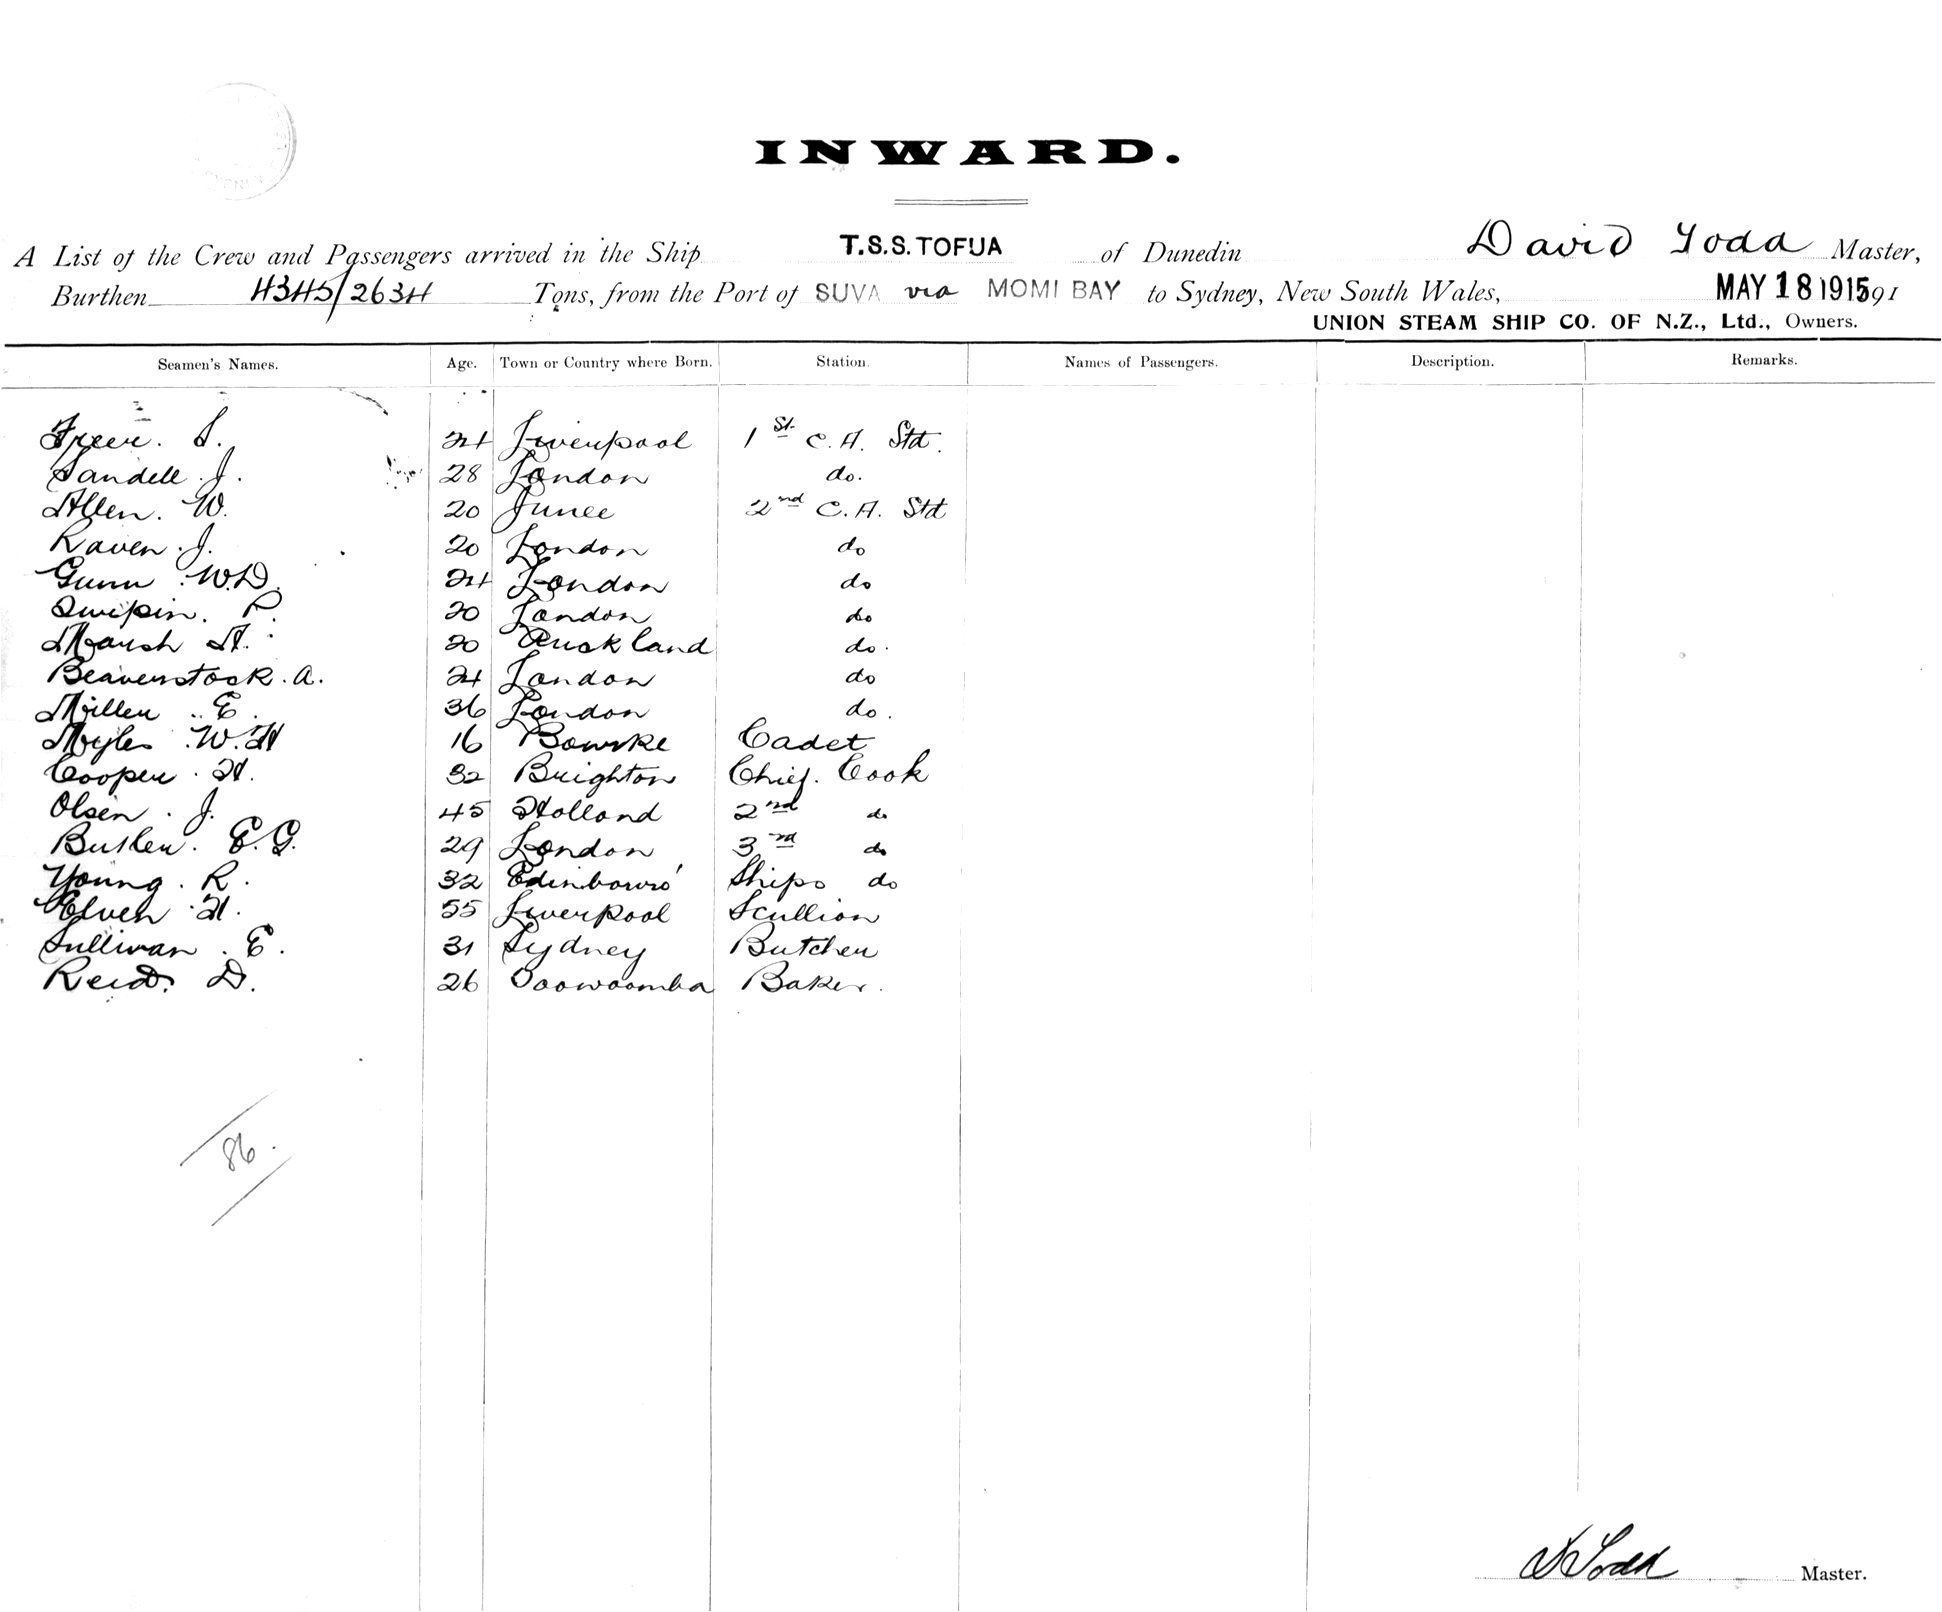 INWARD.
A List of the Crew and Passengers arrived in the Ship T.S.S. TOFUA of Dunedin David Todd Master,
Burthen 4345/2634 Tons, from the Port of SUVA via MOMI BAY to Sydney, New South Wales, MAY 18 1915 191
UNION STEAM SHIP CO. OF N.Z., Ltd., Owners.
Seamen's Names. Age. Town or Country where Born. Station. Names of Passengers. Description. Remarks.
Freer. S. 24 Liverpool 1st C.A. Std.
Sandell. J. 28 London do.
Allen. W. 20 Junee 2nd C.A. Std
Raven. J. 20 London do
Gunn. W.D. 24 London do
R. 20 London do
Marsh H. 20 Auckland do.
Beaverstock. A. 24 London do
Miller. E. 36 London do.
Myles. W.H 16 Bourke Cadet
Cooper. H. 32 Brighton Chief. Cook
Olsen. J. 45 Holland 2nd do
Butler. E.G. 29 London 3rd do
Young. R. 32 Edinboro' Ships do
Elven. H. 55 Liverpool Scullion
Sullivan. E. 31 Sydney Butcher
Reid. D. 26 Toowoomba Baker.
86.
D Todd Master.